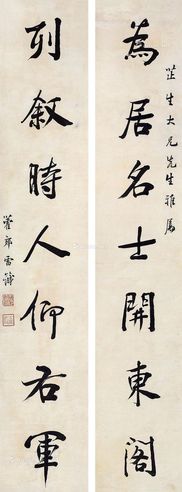 芷生大兄先生雅属
為居名士開東閣
列叙時人仰右軍